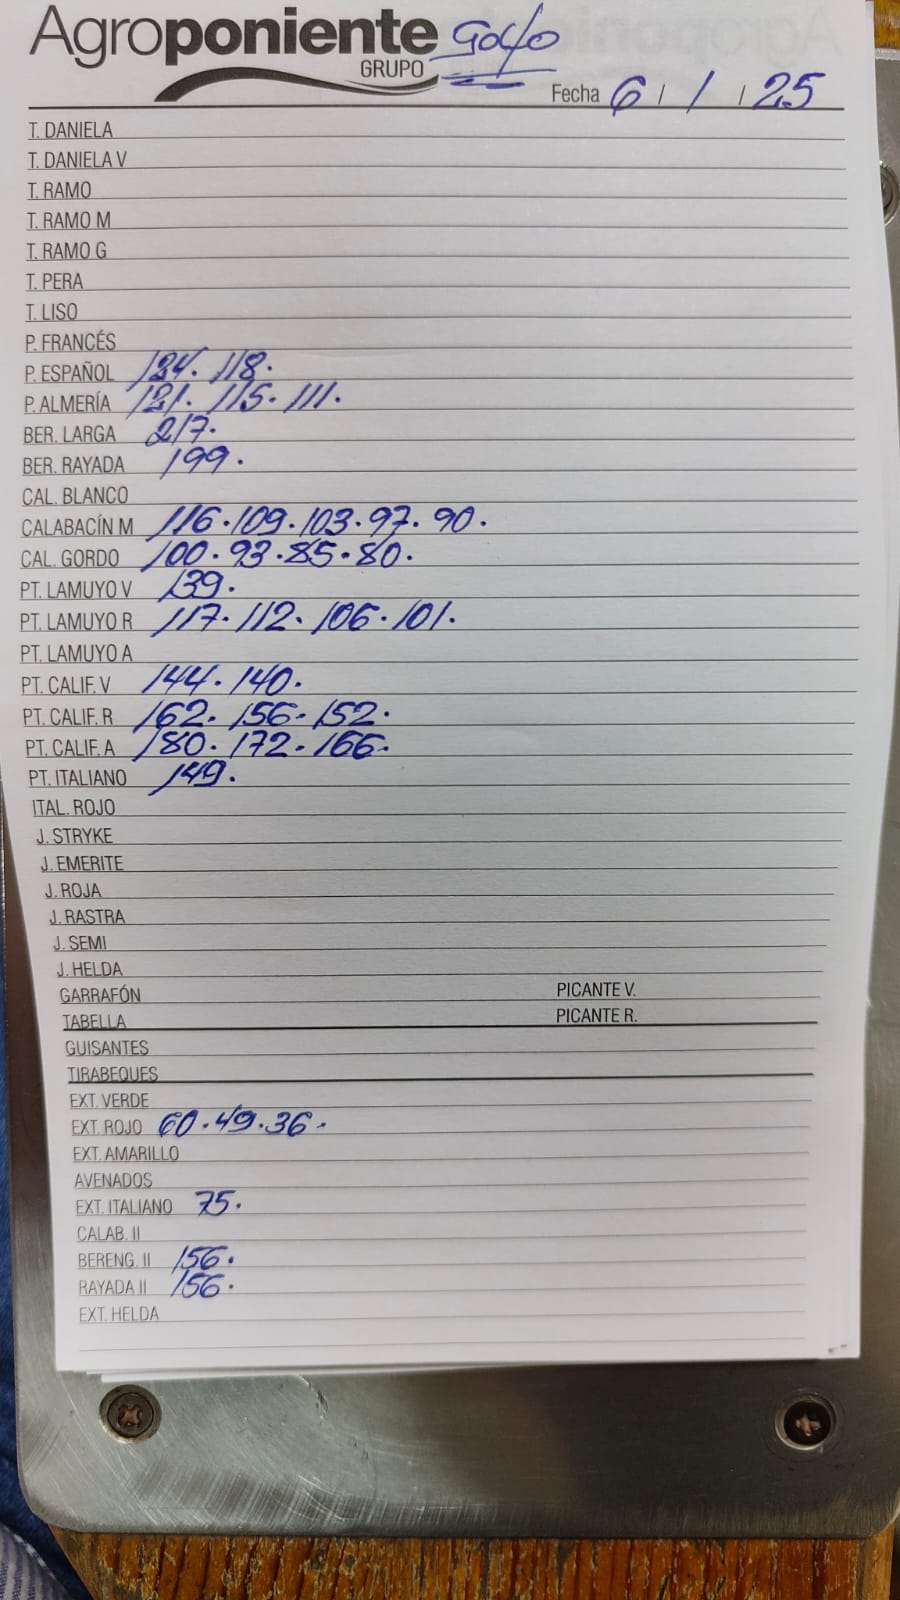 Agroponiente Golfo
GRUPO
Fecha 6 / 1 / 25
T. DANIELA
T. DANIELA V
T. RAMO
T. RAMO M
T. RAMO G
T. PERA
T. LISO
P. FRANCÉS
P. ESPAÑOL 124. 118.
P. ALMERÍA 121. 115. 111.
BER. LARGA 217.
BER. RAYADA 199.
CAL. BLANCO
CALABACÍN M 116. 109. 103. 97. 90.
CAL. GORDO 100. 93. 85. 80.
PT. LAMUYO V 139.
PT. LAMUYO R 117. 112. 106. 101.
PT. LAMUYO A
PT. CALIF. V 144. 140.
PT. CALIF. R 162. 156. 152.
PT. CALIF. A 180. 172. 166.
PT. ITALIANO 149.
ITAL. ROJO
J. STRYKE
J. EMERITE
J. ROJA
J. RASTRA
J. SEMI
J. HELDA
GARRAFÓN PICANTE V.
TABELLA PICANTE R.
GUISANTES
TIRABEQUES
EXT. VERDE
EXT. ROJO 60. 49. 36.
EXT. AMARILLO
AVENADOS
EXT. ITALIANO 75.
CALAB. II
BERENG. II 156.
RAYADA II 156.
EXT. HELDA